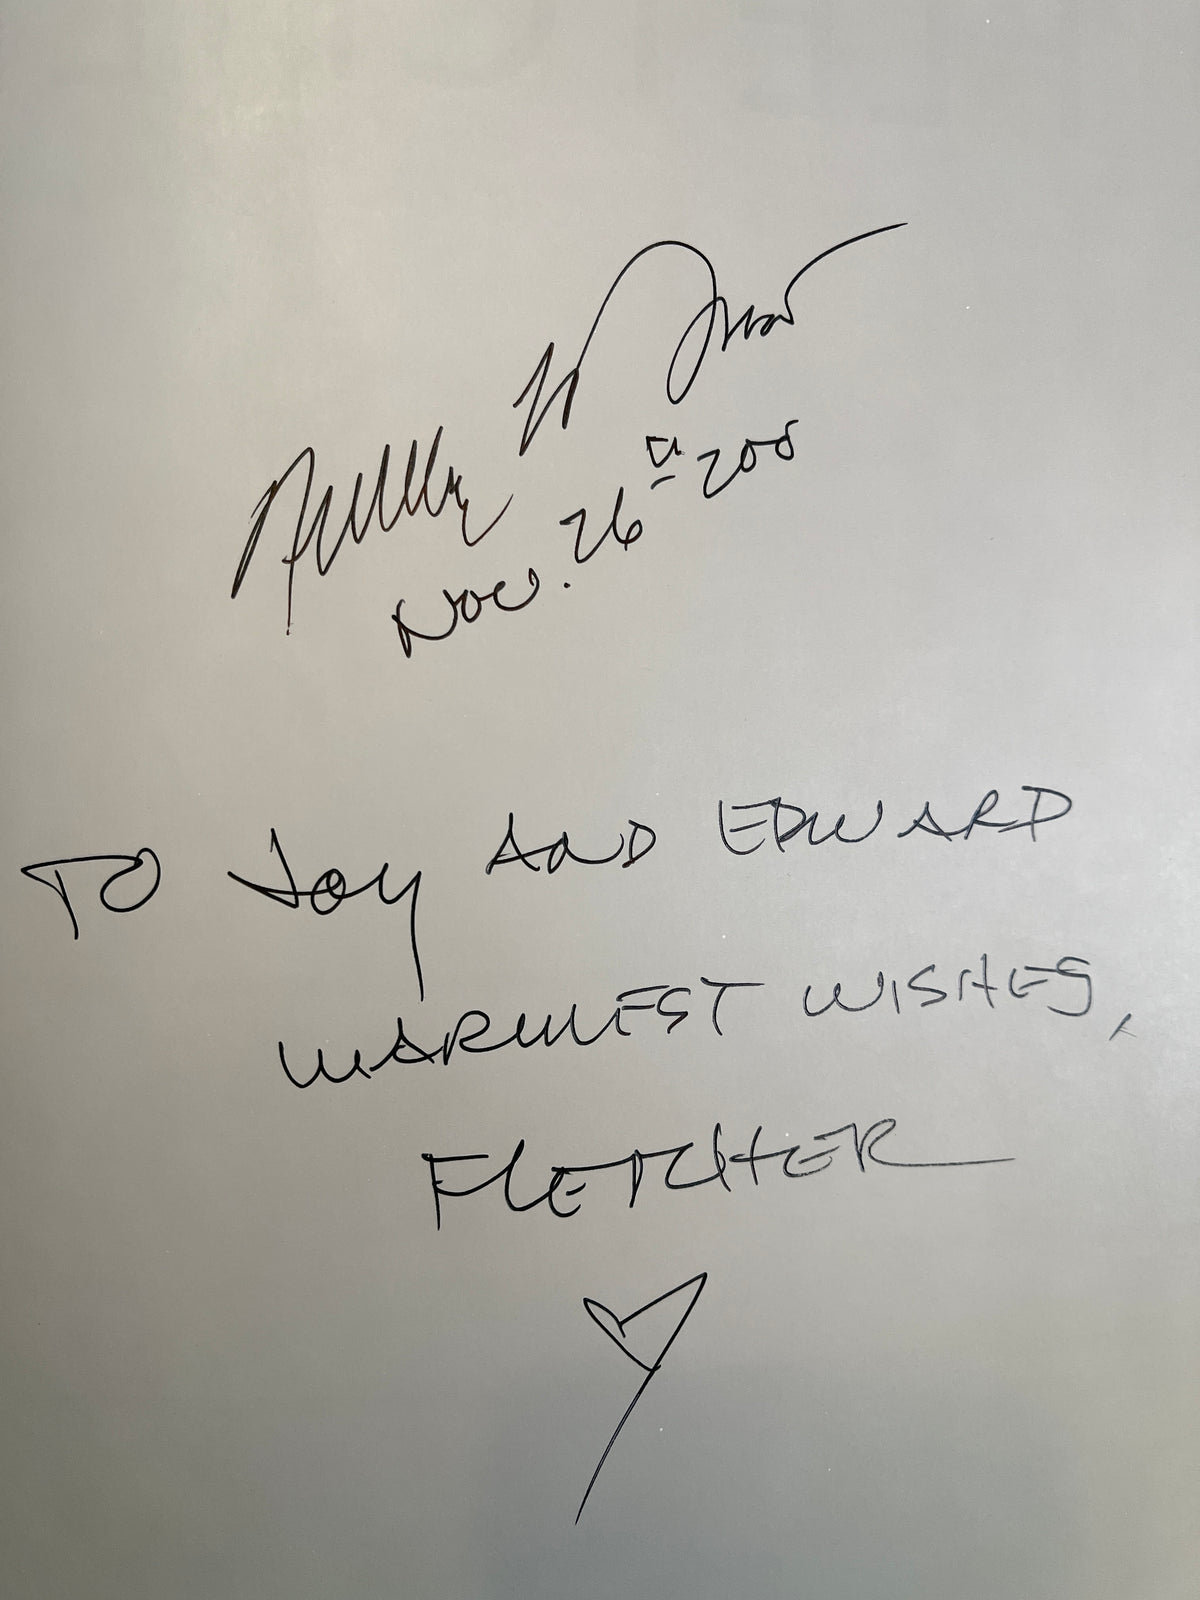 Nov. 26th 200
TO JOY AND EDWARD
WARMEST WISHES,
FLETCHER